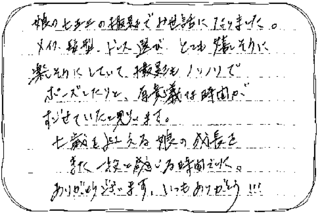 娘の七五三の撮影でお世話になりました。
メイク、髪型、ドレス選び、とても嬉しそうに
楽しそうにしていて、撮影もノリノリで
ポーズしたりと、有意義な時間が
すごせていたと思います。
七歳を迎える娘の成長を
また一段と感じる時間でした。
ありがとうございます。いつもありがとう!!!